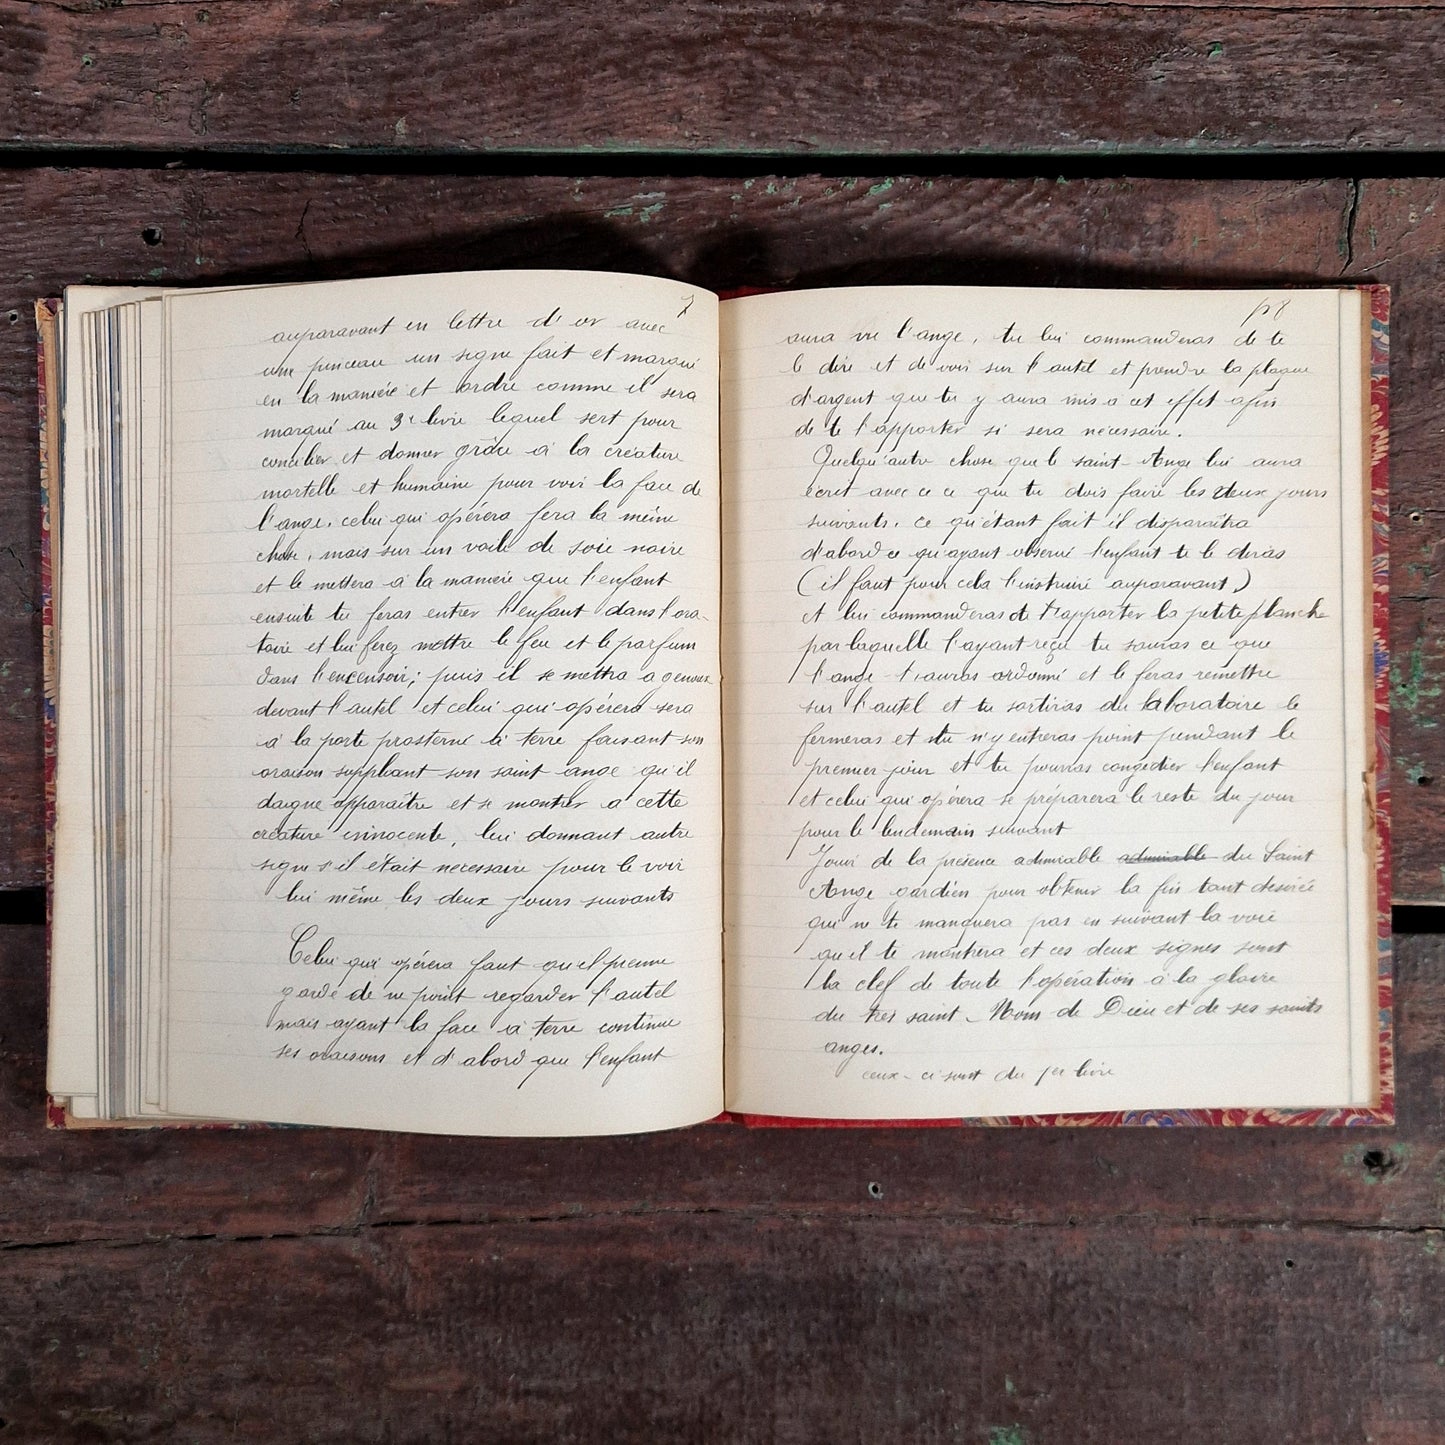 7
auparavant en lettre d'or avec
une pinceau un signe fait et marqué
en la manière et ordre comme il sera
marqué au 3e livre lequel sert pour
concilier et donner grâce à la créature
mortelle et humaine pour voir la face de
l'ange, celui qui opérera fera la même
chose, mais sur un voile de soie noire
et le mettera à la manière que l'enfant
ensuite tu feras entrer l'enfant dans l'ora-
toire et lui ferez mettre le feu et le parfum
dans l'encensoir; puis il se mettra a genoux
devant l'autel et celui qui opérera sera
à la porte prosterné à terre faisant son
oraison suppliant son saint ange qu'il
daigne apparaître et se montrer a cette
créature innocente, lui donnant autre
signe s'il était nécessaire pour le voir
lui même les deux jours suivants
Celui qui opérera faut qu'el prenne
garde de ne point regarder l'autel
mais ayant la face à terre continue
ses oraisons et d'abord que l'enfant
p8
aura vu l'ange, tu lui commanderas de te
le dire et de voir sur l'autel et prendre la plaque
d'argent que tu y aura mis à cet effet afin
de te l'apporter si sera nécessaire.
Quelqu'autre chose que le saint-Ange lui aura
écrit avec ce ce que tu dois faire les deux jours
suivants, ce qu'étant fait il disparaîtra
d'abord ce qu'ayant observé l'enfant te le diras
(il faut pour cela l'instruire auparavant)
et lui commanderas de t'apporter la petite planche
par laquelle l'ayant reçu tu sauras ce que
l'ange t'auras ordonné et le feras remettre
sur l'autel et tu sortiras du laboratoire le
fermeras et tu n'y entreras point pendant le
premier jour et tu pourras congédier l'enfant
et celui qui opérera se préparera le reste du jour
pour le lendemain suivant
Jouir de la présence admirable admirable du Saint
Ange gardien pour obtenir la fin tant désirée
qui ne te manquera pas en suivant la voie
qu'il te montrera et ces deux signes sont
la clef de toute l'opération à la gloire
du très saint Nom de Dieu et de ses saints
anges.
ceux-ci sont du 1er livre